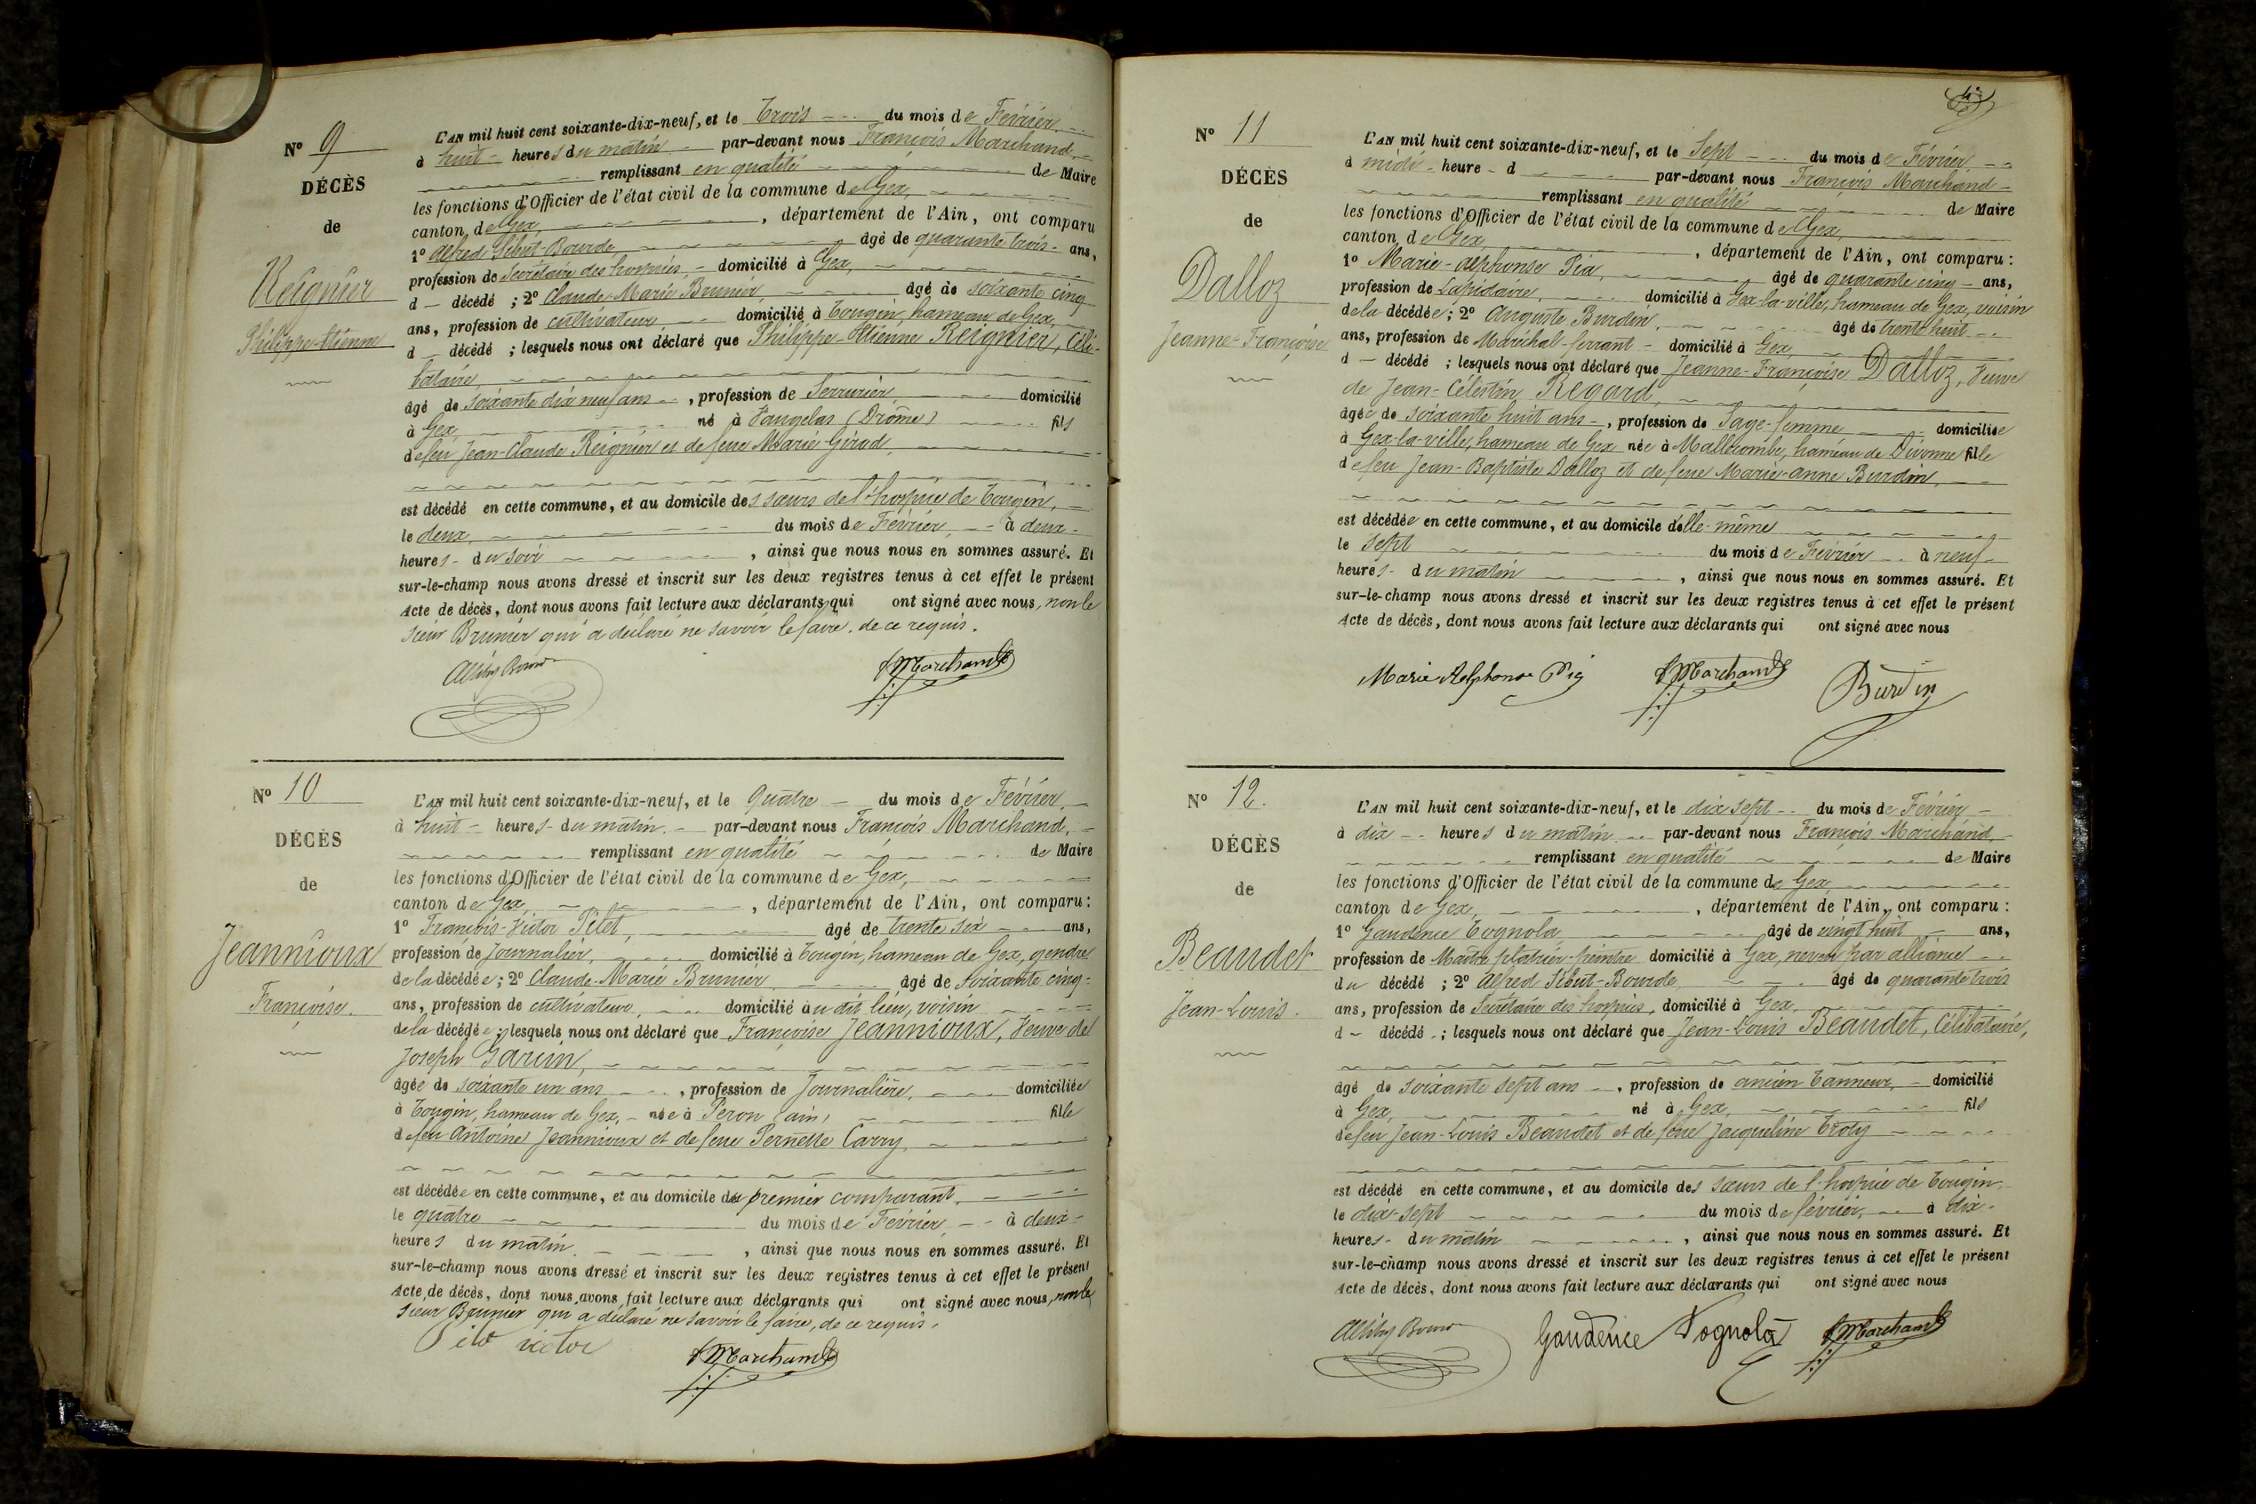 No 9
DÉCÈS
de
Reignier
Philippe-Etienne
L'AN mil huit cent soixante-dix-neuf, et le Trois du mois de Février
à huit heures du matin par-devant nous François Marchand,
remplissant en qualité de Maire
les fonctions d'Officier de l'état civil de la commune de Gex,
canton de Gex, , département de l'Ain, ont comparu
1o Alfred Bourde, âgé de quarante trois ans,
profession de Secrétaire des hospices, domicilié à Gex,
d décédé ; 2o Claude-Marie Brunier âgé de soixante cinq
ans, profession de cultivateur domicilié à Tougin, hameau de Gex,
d décédé ; lesquels nous ont déclaré que Philippe-Etienne Reignier, Céli-
bataire,
âgé de soixante dix neuf ans , profession de Serrurier, domicilié
à Gex, né à Vaugelas (Drôme) fils
de feu Jean-Claude Reignier et de feue Marie Girod,
est décédé en cette commune, et au domicile des sœurs de l'hospice de Tougin,
le deux, du mois de Février, à deux
heures du soir , ainsi que nous nous en sommes assuré. Et
sur-le-champ nous avons dressé et inscrit sur les deux registres tenus à cet effet le présent
Acte de décès, dont nous avons fait lecture aux déclarants qui ont signé avec nous, non le
sieur Brunier qui a déclaré ne savoir le faire, de ce requis.
FMarchand
No 10
DÉCÈS
de
Jeannioux
Françoise.
L'AN mil huit cent soixante-dix-neuf, et le Quatre du mois de Février,
à huit heures du matin. par-devant nous François Marchand,
remplissant en qualité de Maire
les fonctions d'Officier de l'état civil de la commune de Gex,
canton de Gex , département de l'Ain, ont comparu :
1o François-Victor Pilet, âgé de trente six ans,
profession de Journalier, domicilié à Tougin, hameau de Gex, gendre
de la décédée ; 2o Claude-Marie Brunier âgé de soixante cinq
ans, profession de cultivateur, domicilié au dit lieu, voisin
de la décédée ; lesquels nous ont déclaré que Françoise Jeannioux, Veuve de
Joseph Garin,
âgée de soixante un ans , profession de Journalière, domiciliée
à Tougin, hameau de Gex, née à Péron (ain) fille
de feu Antoine Jeannioux et de feue Pernette Carry
est décédée en cette commune, et au domicile du premier comparant,
le quatre du mois de Février à deux
heures du matin , ainsi que nous nous en sommes assuré. Et
sur-le-champ nous avons dressé et inscrit sur les deux registres tenus à cet effet le présent
Acte de décès, dont nous avons fait lecture aux déclarants qui ont signé avec nous, non le
sieur Brunier qui a déclaré ne savoir le faire, de ce requis.
Pilet victor
FMarchand
No 11
DÉCÈS
de
Dalloz
Jeanne-Françoise
L'AN mil huit cent soixante-dix-neuf, et le Sept du mois de Février
à midi heure d par-devant nous François Marchand
remplissant en qualité de Maire
les fonctions d'Officier de l'état civil de la commune de Gex,
canton de Gex, , département de l'Ain, ont comparu :
1o Marie-Alphonse Pia, âgé de quarante cinq ans,
profession de Lapidaire, domicilié à Gex-la-ville, hameau de Gex, voisin
de la décédée ; 2o Auguste Burdin, âgé de trente huit
ans, profession de Maréchal-ferrant domicilié à Gex,
d décédé ; lesquels nous ont déclaré que Jeanne-Françoise Dalloz, Veuve
de Jean-Célestin Regard,
âgée de soixante huit ans , profession de Sage-femme domiciliée
à Gex-la-ville, hameau de Gex née à Mallecombe, hameau de Divonne fille
de feu Jean-Baptiste Dalloz et de feue Marie-anne Burdin,
est décédée en cette commune, et au domicile d'elle-même
le sept du mois de Février à neuf
heures du matin , ainsi que nous nous en sommes assuré. Et
sur-le-champ nous avons dressé et inscrit sur les deux registres tenus à cet effet le présent
Acte de décès, dont nous avons fait lecture aux déclarants qui ont signé avec nous
Marie Alphonse Pia FMarchand Burdin
No 12.
DÉCÈS
de
Beaudet
Jean-Louis.
L'AN mil huit cent soixante-dix-neuf, et le dix sept du mois de Février
à dix heures du matin par-devant nous François Marchand,
remplissant en qualité de Maire
les fonctions d'Officier de l'état civil de la commune de Gex,
canton de Gex, , département de l'Ain, ont comparu :
1o Gaudence Tognola âgé de vingt huit ans,
profession de Maître plâtrier-peintre domicilié à Gex, neveu par alliance
du décédé ; 2o Alfred Bourde âgé de quarante trois
ans, profession de Secrétaire des hospices, domicilié à Gex,
d décédé ; lesquels nous ont déclaré que Jean-Louis Beaudet, Célibataire,
âgé de soixante sept ans , profession de ancien tanneur, domicilié
à Gex, né à Gex, fils
de feu Jean-Louis Beaudet et de feue Jacqueline
est décédé en cette commune, et au domicile des sœurs de l'hospice de Tougin
le dix-sept du mois de février, à dix
heures du matin , ainsi que nous nous en sommes assuré. Et
sur-le-champ nous avons dressé et inscrit sur les deux registres tenus à cet effet le présent
Acte de décès, dont nous avons fait lecture aux déclarants qui ont signé avec nous
Gaudence Tognola FMarchand